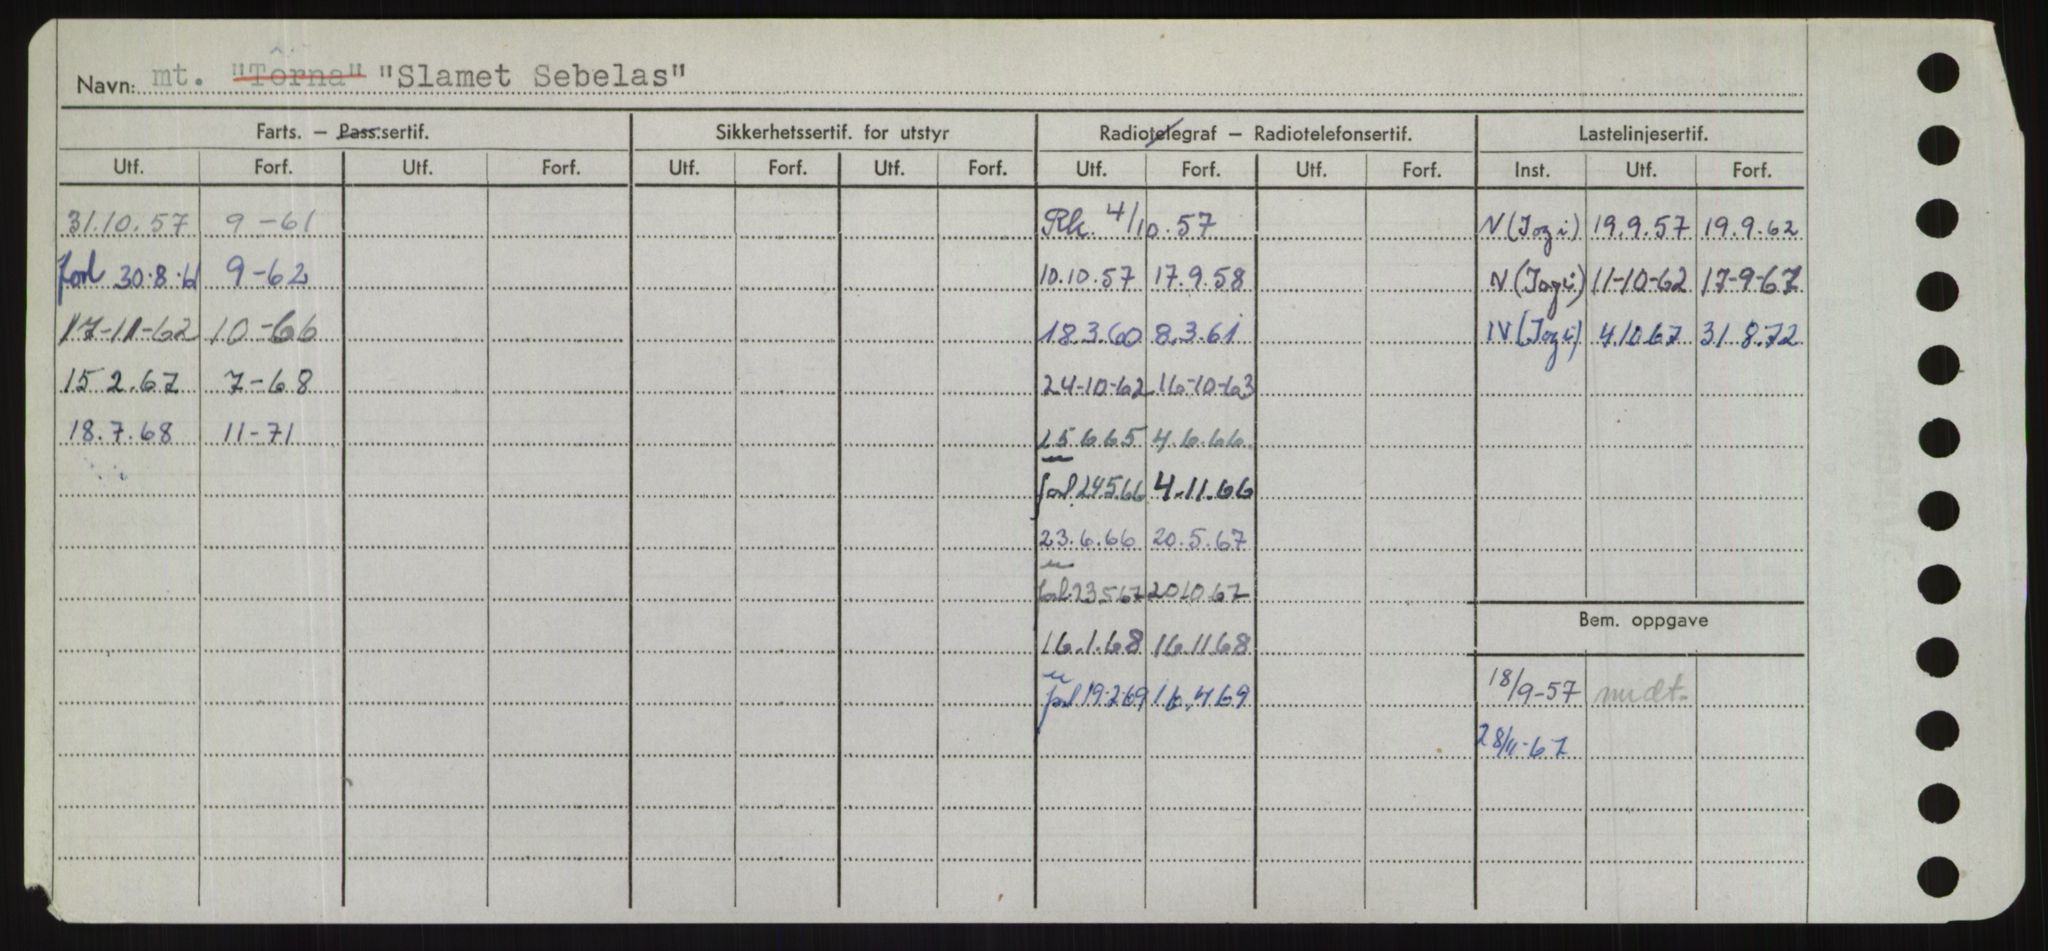 Navn: mt. "Torna" "Slamet Sebelas"
Farts. – Pass.sertif. Sikkerhetssertif. for utstyr Radiotelegraf – Radiotelefonsertif. Lastelinjesertif.
Utf. Forf. Utf. Forf. Utf. Forf. Utf. Forf. Utf. Forf. Utf. Forf. Inst. Utf. Forf.
31.10.57 9-61 Rk. 4/10.57 N (Jogi) 19.9.57 19.9.62
forl 30.8.61 9-62 10.10.57 17.9.58 N (Jogi) 11-10-62 17-9-67
17-11-62 10-66 18.3.60 8.3.61 N (Jogi) 4.10.67 31.8.72
15.2.67 7-68 24-10-62 16-10-63
18.7.68 11-71 25.6.65 4.6.66
forl 24.5.66 4.11.66
23.6.66 20.5.67
forl. 23.5.67 20.10.67
Bem. oppgave
16.1.68 16.11.68
forl 19.2.69 16.4.69 18/9-57 midt.
28/11-67